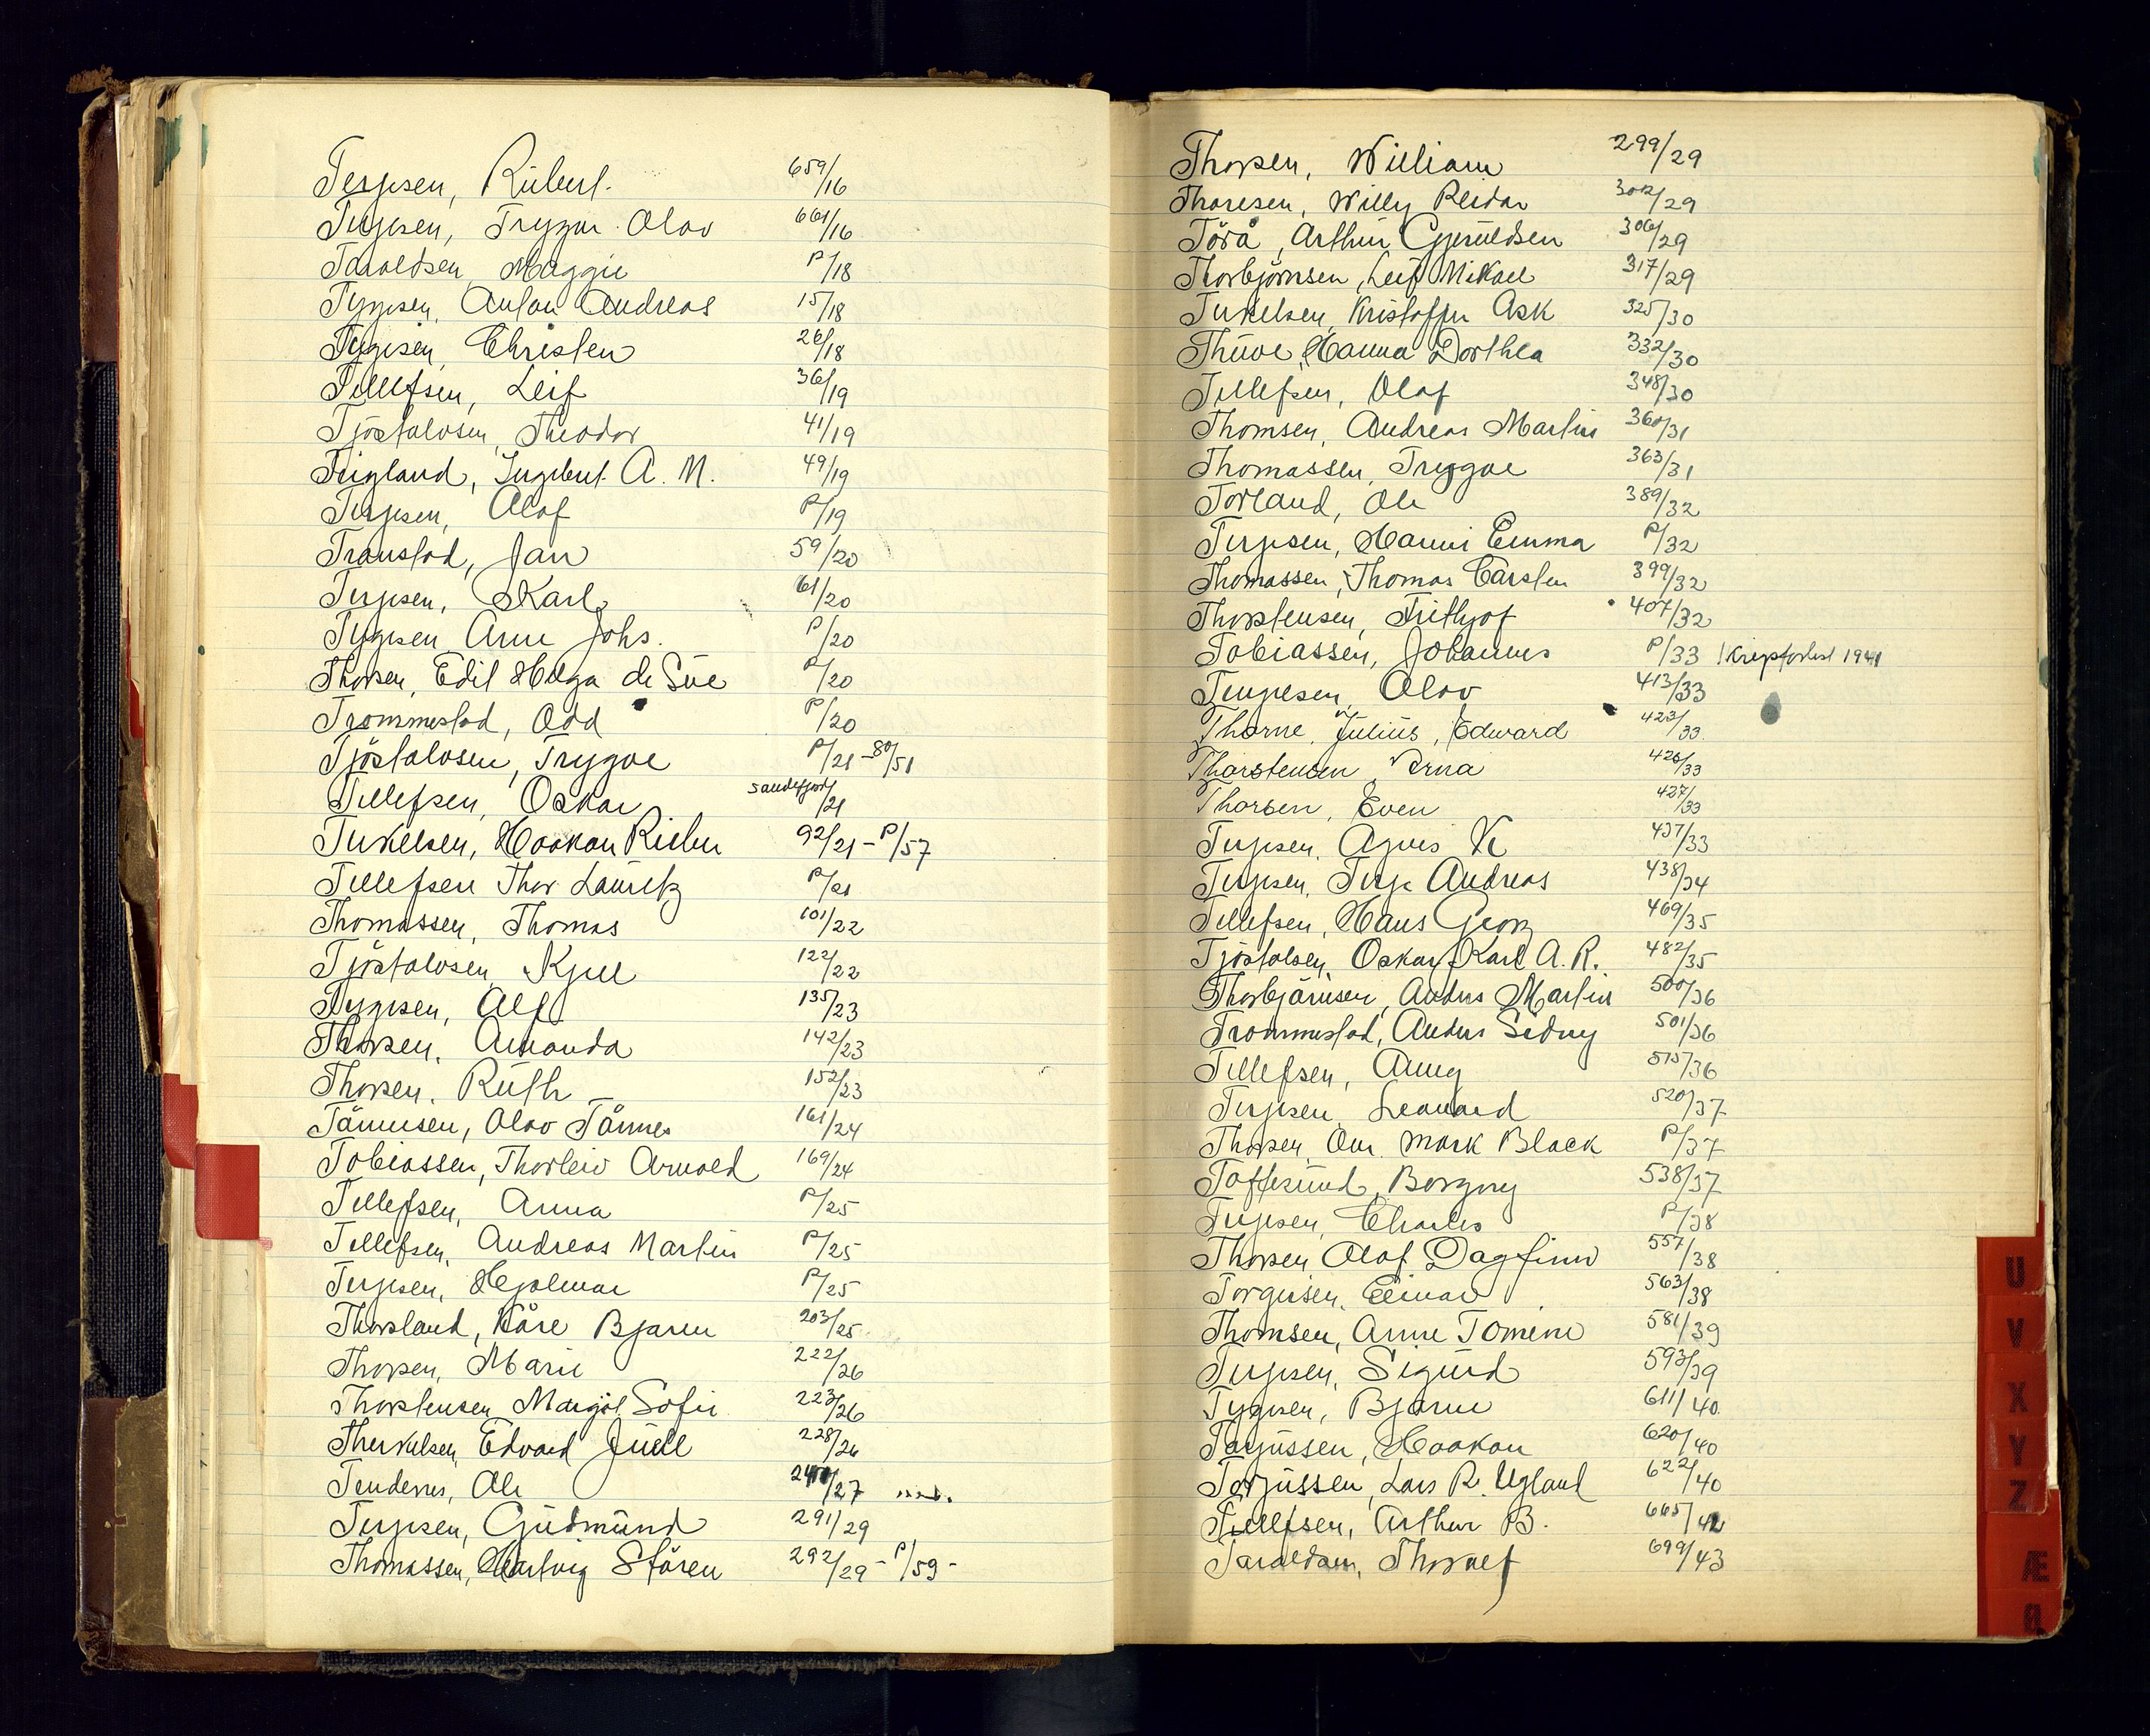 Terjesen, Robert. 659/16
Terjesen, Trygve Olav 661/16
Taraldsen, Maggie P/18
Tygesen, Anton Andreas 15/18
Tygesen, Christen 26/18
Tellefsen, Leif 36/19
Tjöstolvsen, Theodor 41/19
Ingebret A. M. 49/19
Terjesen, Olaf P/19
Transtad, Jan 59/20
Terjesen, Karl 61/20
Tygesen Arne Johs. P/20
Thorsen, Edil Helga de Sue P/20
Trommestad, Odd P/20
Tjöstolvsen, Trygve P/21 - 80/51
Tellefsen, Oskar Sandefjord/21
Terkelsen, Haakon 92/21 - P/57
Tellefsen Thor Lauritz P/21
Thomassen, Thomas 101/22
Tjöstolvsen, Kjell 122/22
Tygesen, Alf 135/23
Thorsen, Amanda 142/23
Thorsen, Ruth 152/23
Tånnesen, Olav Tånnes 161/24
Tobiassen, Thorleiv Arnold 169/24
Tellefsen, Anna P/25
Tellefsen, Andreas Martin P/25
Terjesen, Hjalmar P/25
Thorsland, Kåre Bjarne 203/25
Thorsen, Marie 222/26
Thorstensen, Margot Sofie 223/26
Therkelsen, Edvard Juell 228/26
Tendenes, Ole /27
Terjesen, Gudmund 291/29
Thomassen, Hartvig Stören 292/29 - P/59 -
Thorsen, William 299/29
Thoresen, Willy Reidar 302/29
Törå, Arthur Gjeruldsen 306/29
Thorbjörnsen, Leif Mikael 317/29
Terkelsen, Kristoffer Ask 325/30
Thuve, Hanna Dorthea 332/30
Tellefsen, Olaf 348/30
Thomsen, Andreas Martin 360/31
Thomassen, Trygve 363/31
Torland, Ole 389/32
Terjesen, Hanni Emma P/32
Thomassen, Thomas Carsten 399/32
Thorstensen, Frithjof 407/32
Tobiassen, Johannes P/33 ! Krigsforlist 1941
Tengesen, Olav 413/33
Thorne, Julius, Edward 423/33
Thorstensen, Arna 426/33
Thorsen, Even 427/33
Terjesen, Agnes K 437/33
Terjesen, Terje Andreas 438/34
Tellefsen, Hans Georg 469/35
Tjöstolsen, Oskar Karl A. R. 482/35
Thorbjörnsen, Anders Martin 500/36
Trommestad, Anders Sidny 501/36
Tellefsen, Anny 515/36
Terjesen, Leonard 520/37
Thorsen, Mark Black P/37
Toffesund, Borgny 538/37
Terjesen, Charles P/38
Thorsen Olaf Dagfinn 557/38
Torgersen, Einar 563/38
Thomsen, Anne Tomine 581/39
Terjesen, Sigurd 593/39
Tygesen, Bjarne 611/40
Tarjussen, Haakon 620/40
Terjussen, Lars R. Ugland 622/40
Tellefsen, Arthur B. 665/42
Taraldsen, Thoralf 699/43
U
V
X
Y
Z
Æ
Ø